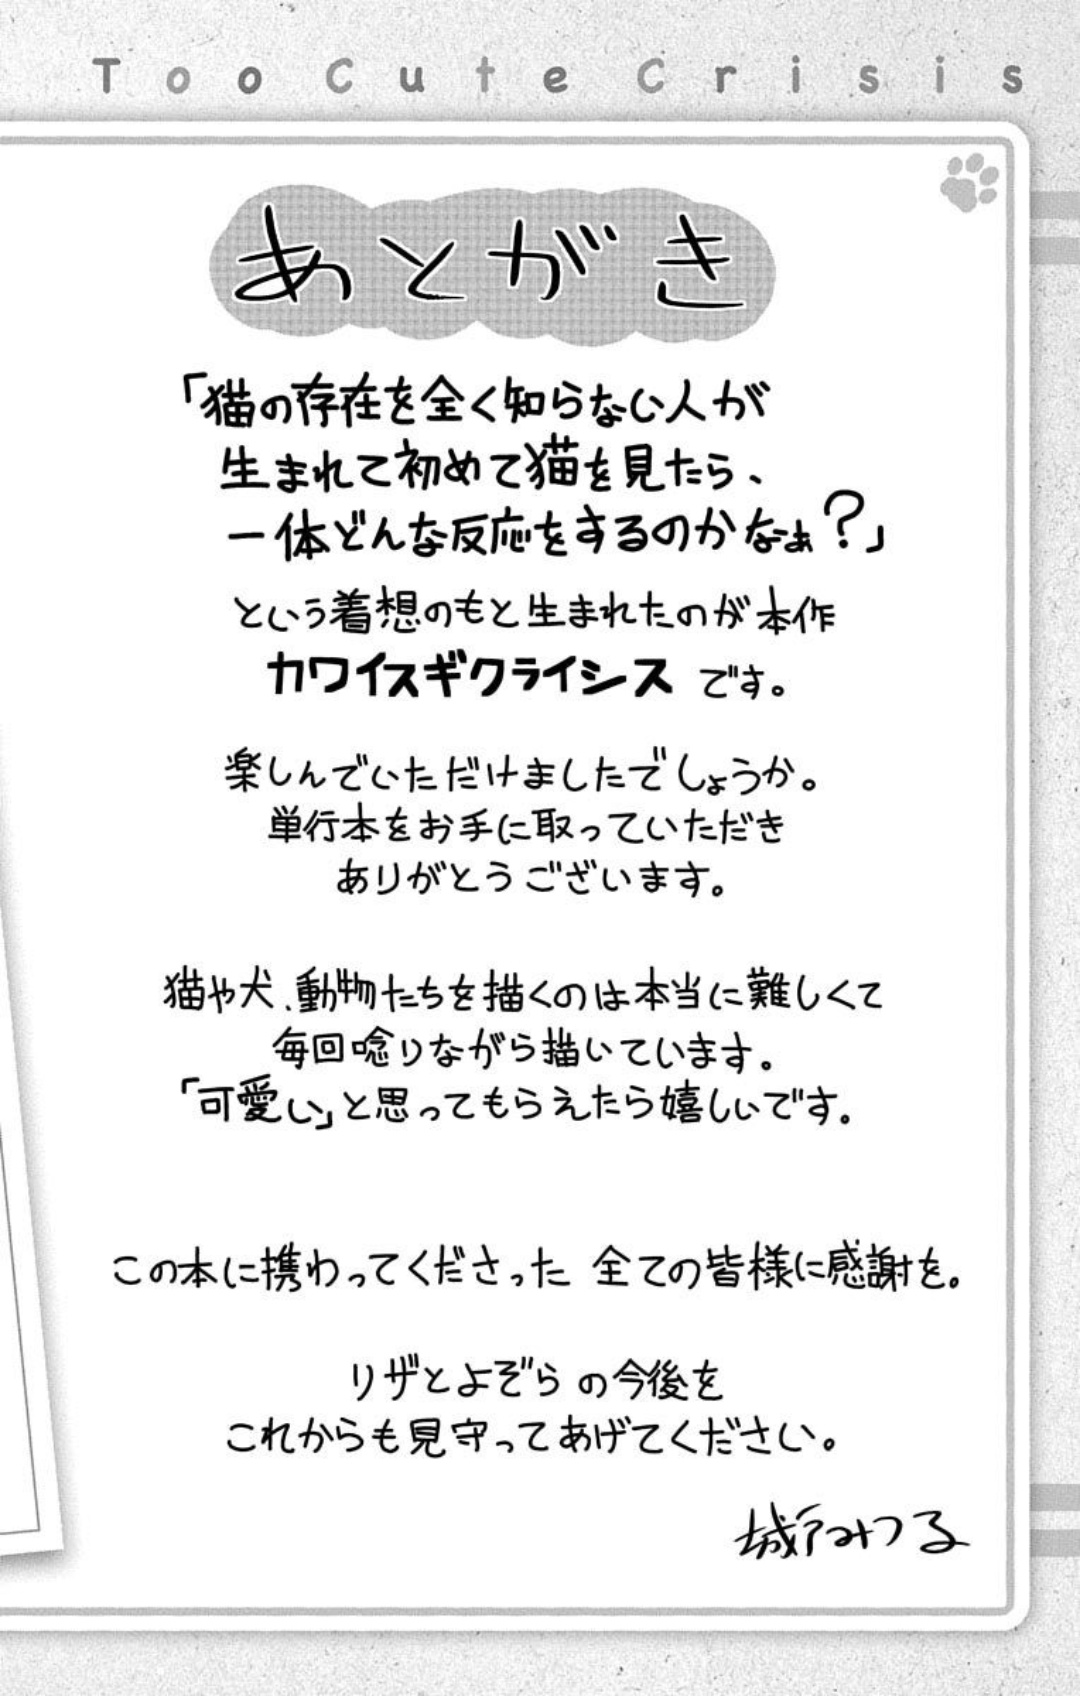 Too Cute Crisis
あとがき
「猫の存在を全く知らない人が
生まれて初めて猫を見たら、
一体どんな反応をするのかなぁ?」
という着想のもと生まれたのが本作
カワイスギクライシス です。
楽しんでいただけましたでしょうか。
単行本をお手に取っていただき
ありがとうございます。
猫や犬、動物たちを描くのは本当に難しくて
毎回唸りながら描いています。
「可愛い」と思ってもらえたら嬉しいです。
この本に携わってくださった 全ての皆様に感謝を。
リザとよぞらの今後を
これからも見守ってあげてください。
城戸みつる